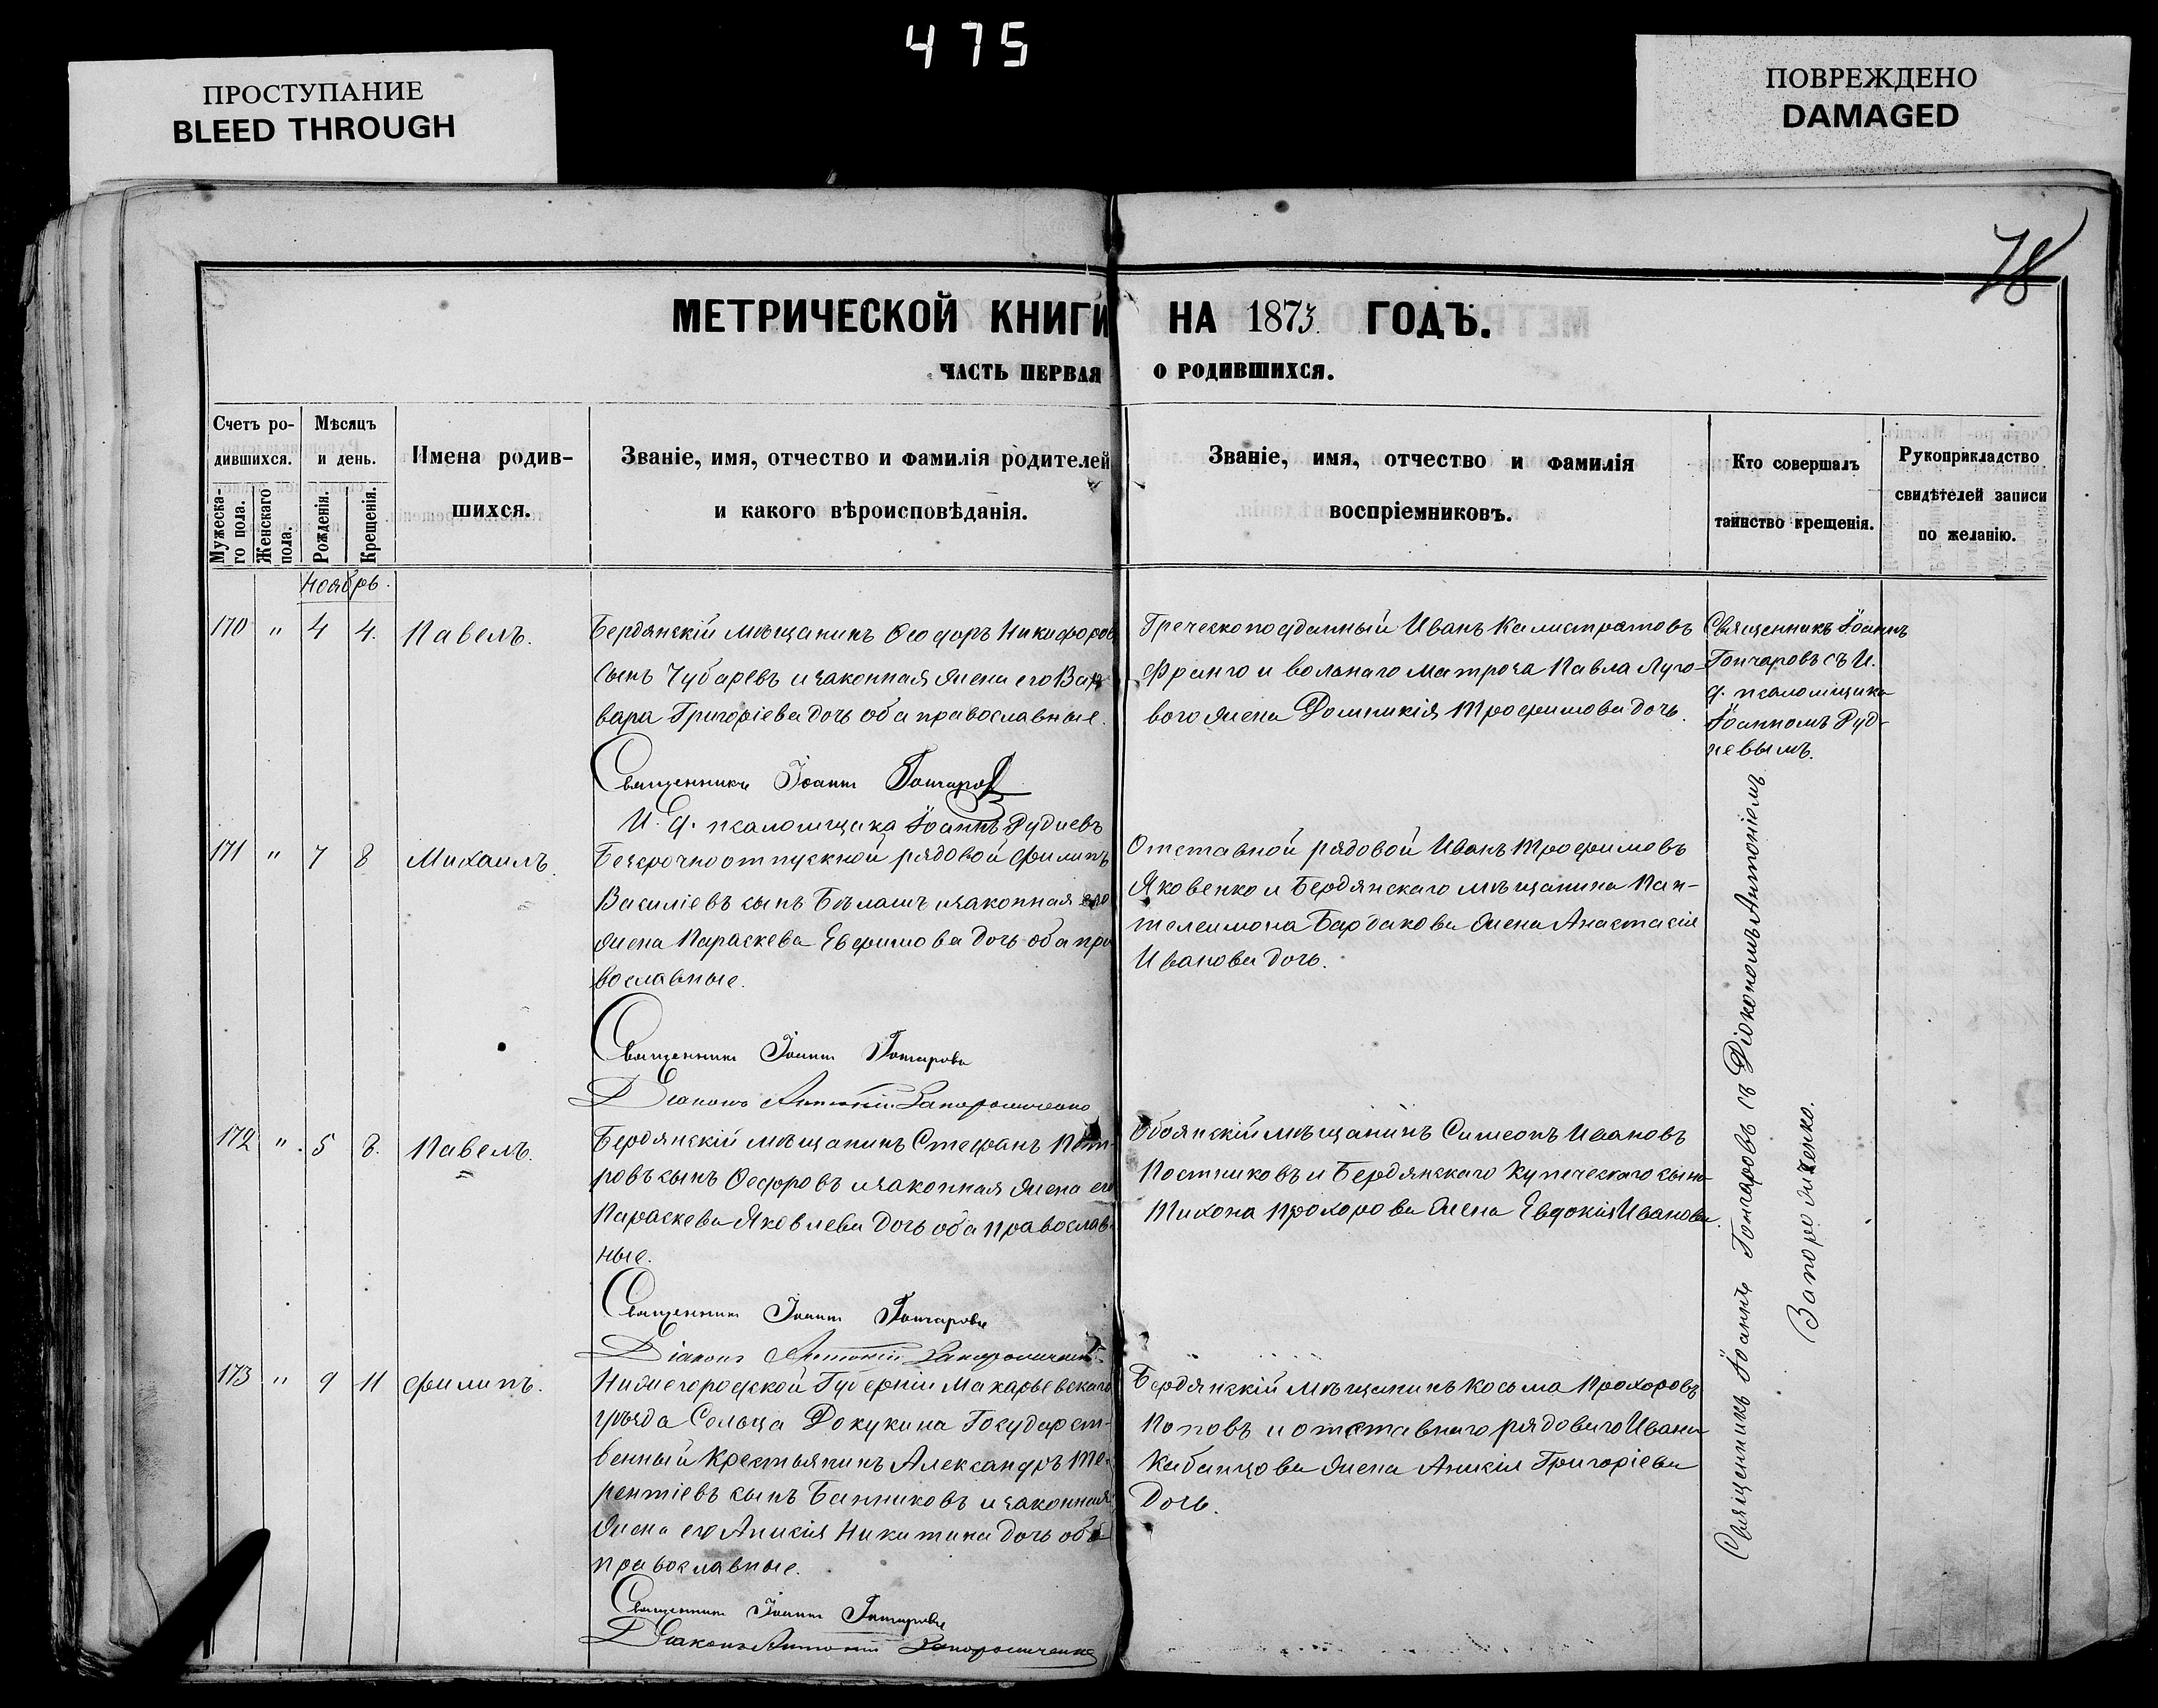 475
ПРОСТУПАНИЕ
BLEED THROUGH
ПОВРЕЖДЕНО
DAMAGED
78
МЕТРИЧЕСКОЙ КНИГИ НА 1873 ГОДЪ.
ЧАСТЬ ПЕРВАЯ О РОДИВШИХСЯ.
Счетъ ро-
дившихся.
Мужеска-
го пола.
Женскаго
пола.
Мѣсяцъ
и день.
Рожденія.
Крещенія.
Имена родив-
шихся.
Званіе, имя, отчество и фамилія родителей
и какого вѣроисповѣданія.
Званіе, имя, отчество и фамилія
воспріемниковъ.
Кто совершалъ
таинство крещенія.
Рукоприкладство
свидѣтелей записи
по желанію.
Ноябрь.
170 " 4 4. Павелъ.
Бердянскій мѣщанинъ Ѳеодоръ Никифоров
сынъ Чубаревъ и законная жена его Вар
вара Григоріева дочь оба православные.
Священникъ Іоаннъ Гончаровъ
И. д. псаломщика Іоаннъ Рудневъ
Греческоподданный Иванъ Калистратовъ
Франго и вольнаго матроса Павла Луго-
вого жена Домникія Трофимова дочь.
Священникъ Іоаннъ
Гончаровъ съ И.
д. псаломщика
Іоанномъ Руд-
невымъ.
171 " 7 8 Михаилъ.
Безсрочноотпускной рядовой Филипъ
Василіевъ сынъ Бѣлашъ и законная его
жена Параскева Ефимова дочь оба пра
вославные.
Священникъ Іоаннъ Гончаровъ
Діаконъ Антоній Запорожченко
Отставной рядовой Иванъ Трофимовъ
Яковенко и Бердянскаго мѣщанина Пан-
телеимона Бардакова жена Анастасія
Иванова дочь.
172 " 5 8. Павелъ.
Бердянскій мѣщанинъ Стефанъ Пет-
ровъ сынъ Ѳедоровъ и законная жена его
Параскева Яковлева дочь оба православ-
ные.
Священникъ Іоаннъ Гончаровъ
Діаконъ Антоній Запорожченко
Обоянскій мѣщанинъ Симеонъ Ивановъ
Постниковъ и Бердянскаго купеческаго сына
Тихона Прохорова жена Евдокія Иванова.
173 " 9 11 Филипъ.
Нижегородской Губерніи Макарьевскаго
уѣзда Сельца Докукина Государст-
венный крестьянинъ Александръ Те-
рентіевъ сынъ Банниковъ и законная
жена его Анисія Никитина дочь оба
православные.
Священникъ Іоаннъ Гончаровъ
Діаконъ Антоній Запорожченко
Бердянскій мѣщанинъ Косьма Прохоровъ
Поповъ и отставнаго рядового Ивана
Кабанцова жена Анисія Григоріева
дочь.
Священникъ Іоаннъ Гончаровъ съ Діакономъ Антоніемъ
Запорожченко.